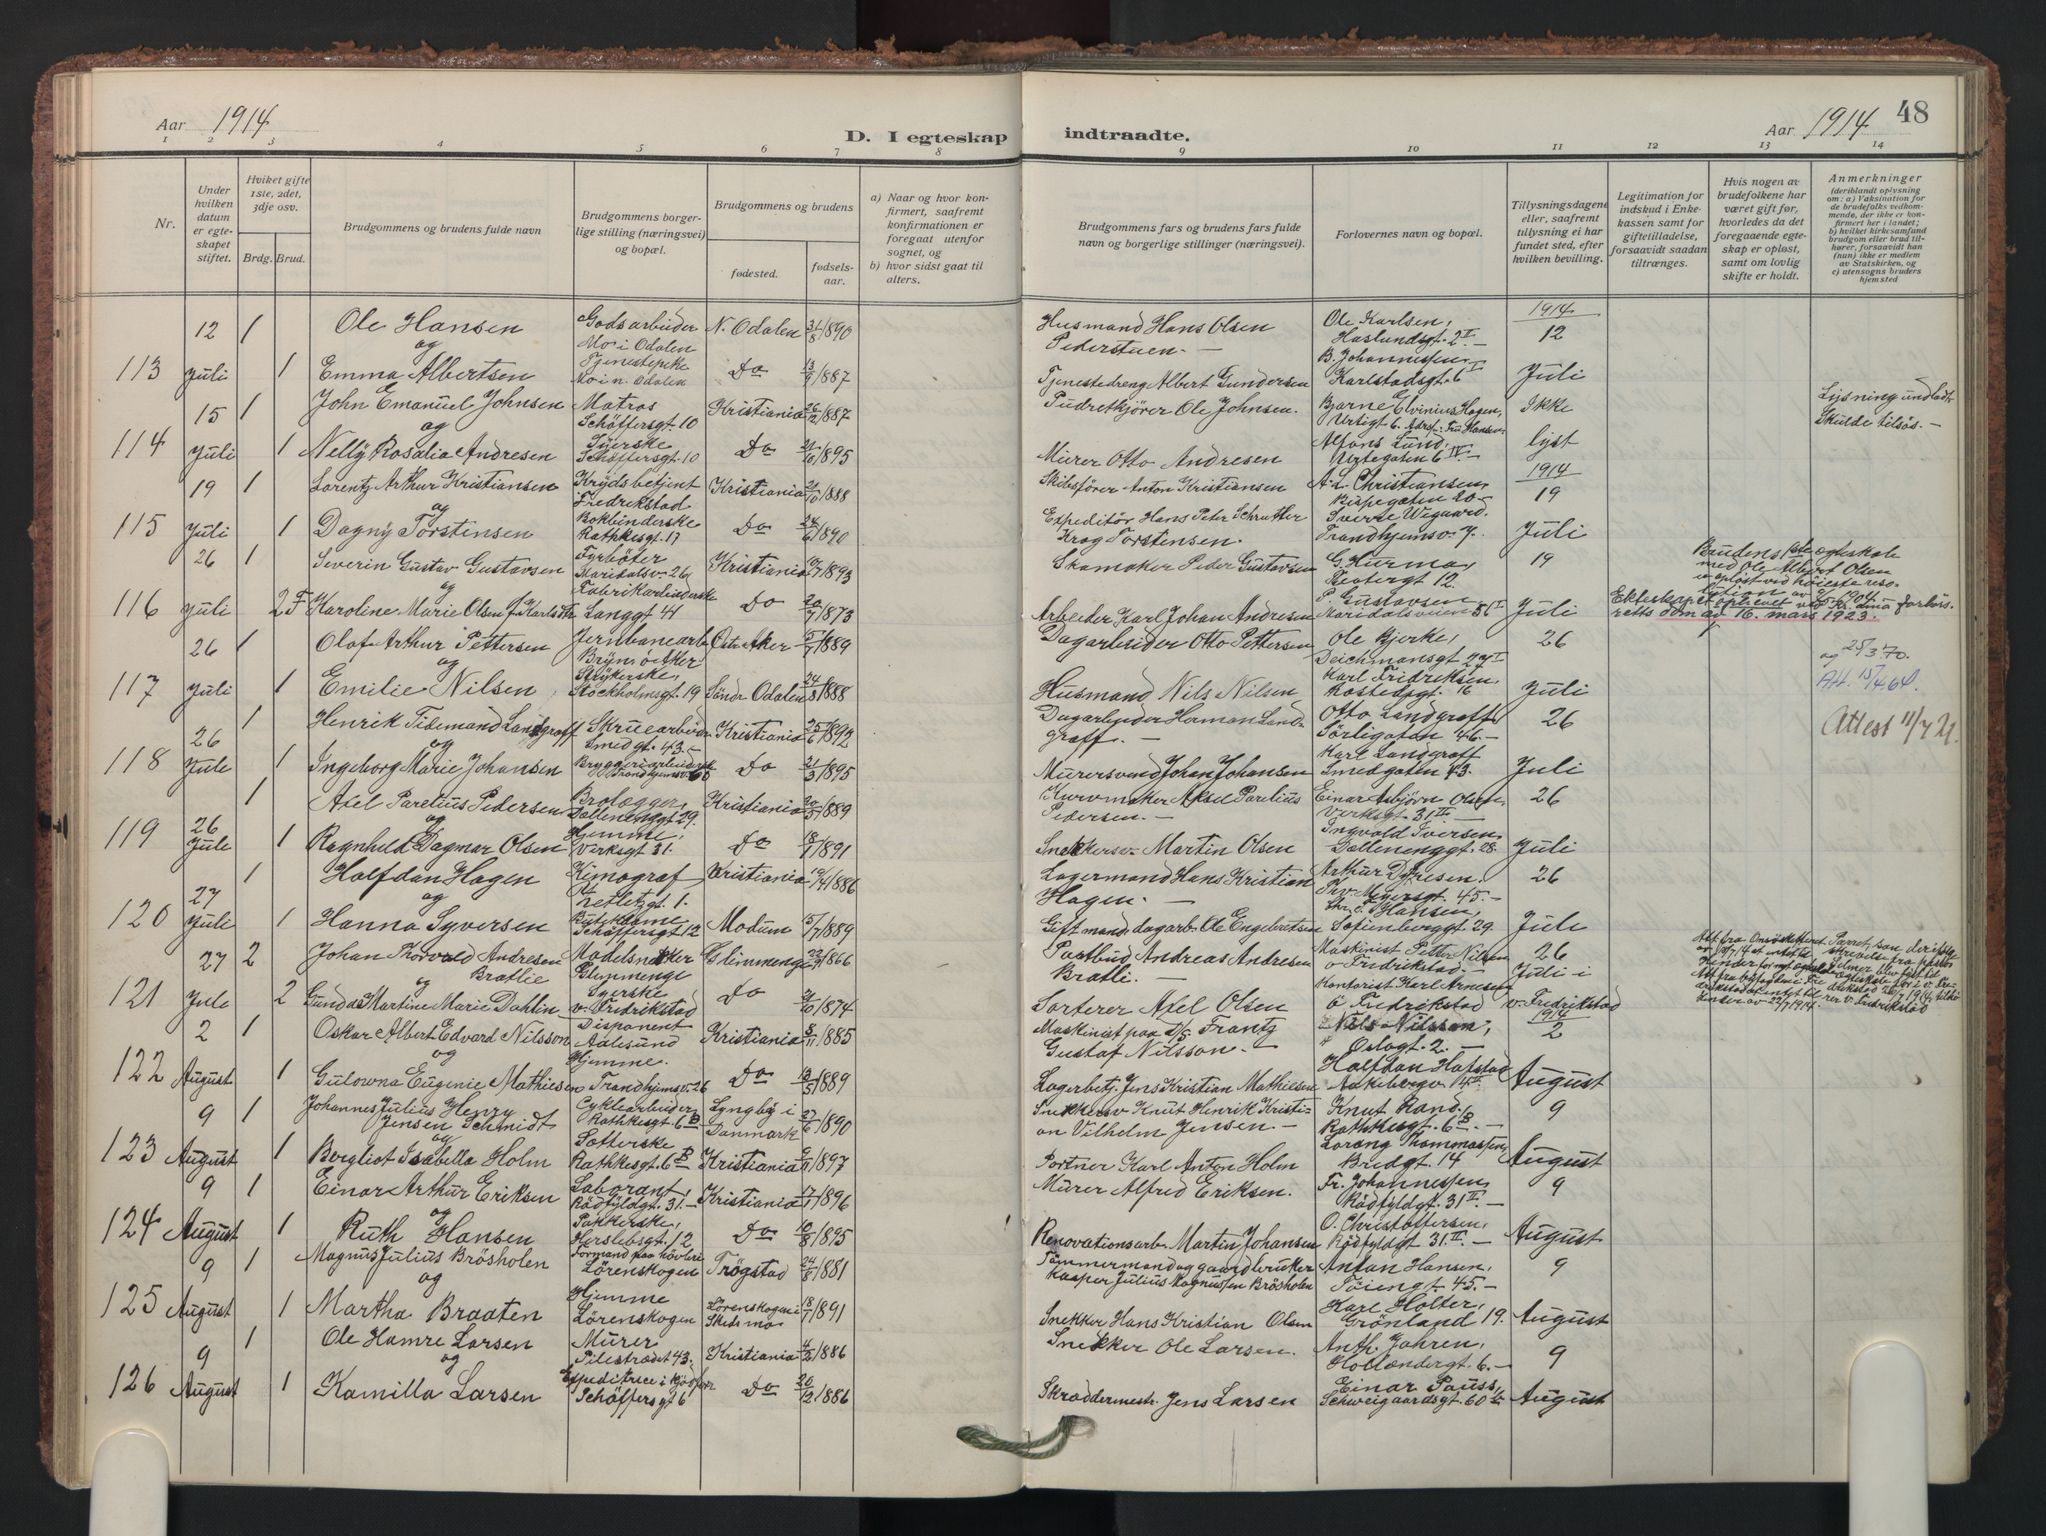 Aar 1914
D. I egteskap
indtraadte.
Aar 1914
48
1 2 3 4 5 6 7 8 9 10 11 12 13 14
Nr.
Under hvilken datum er egteskapet stiftet.
Hviket gifte 1ste, 2det, 3dje osv.
Brdg. Brud.
Brudgommens og brudens fulde navn
Brudgommens borgerlige stilling (næringsvei) og bopæl.
Brudgommens og brudens
fødested.
fødselsaar.
a) Naar og hvor konfirmert, saafremt konfirmationen er foregaat utenfor sognet, og
b) hvor sidst gaat til alters.
Brudgommens fars og brudens fars fulde navn og borgerlige stillinger (næringsvei).
Forlovernes navn og bopæl.
Tillysningsdagene eller, saafremt tillysning ei har fundet sted, efter hvilken bevilling.
Legitimation for indskud i Enkekassen samt for giftetilladelse, forsaavidt saadan tiltrænges.
Hvis nogen av brudefolkene har været gift før, hvorledes da det foregaaende egteskap er opløst, samt om lovlig skifte er holdt.
Anmerkninger
(deriblandt oplysning om: a) Vaksination for de brudefolks vedkommende, der ikke er konfirmert her i landet; b) hvilket kirkesamfund brudgom eller brud tilhører, forsaavidt han (hun) ikke er medlem av Statskirken, og c) utensogns bruders hjemsted
12 1 Ole Hansen Godsarbeider Mo i Odalen N. Odalen 31/8 1890 Husmand Hans Olsen Pederstuen. — Ole Karlsen, Haslundsgt. 2 II — 1914 12
og
113 Juli 1 Emma Albertsen Tjenestepike Mo i n. Odalen Do 13/9 1887 Tjenestedreng Albert Gundersen B. Johannessen Karlstadsgt. 6 I Juli
15 1 John Emanuel Johnsen Matros Schöffersgt 10 Kristiania 26/2 1887 Pudretkjører Ole Johnsen. Bjarne Elvinius Hagen, Urtegt 6. Ikke Lysning undladt Skulde tilsøs. —
og
114 Juli 1 Nelly Rosalia Andresen Syerske Schöffersgt. 10 Do 21/10 1895 Murer Otto Andresen Alfons Lund, Urtegaten 6 IV — lyst
19 1 Lorentz Arthur Kristiansen Krydsbetjent Fredrikstad Kristiania 21/10 1888 Skibsfører Anton Kristiansen A. L. Christiansen, Bispegaten 20 — 1914 19
og
115 Juli 1 Dagny Torstensen Bokbinderske Rathkesgt. 17 Do 24/6 1890 Expeditör Hans Peter Schrøtter Krog Torstensen. Sverre Wegaard. Trondhjemsv. 7. Juli
26 1 Severin Gustav Gustavsen Fyrbøter Maridalsv. 26 Kristiania 1893 Skomaker Peder Gustavsen 19 Brudens ægteskab med Ole Albert Olsen er opløst ved høieste resolution av 1904
og
116 Juli 2 F Karoline Marie Olsen f. Karlsen Fabrikarbeiderske Langgt 41 Do 20/7 1873 Arbeider Karl Johan Andresen P. Gustavsen Maridalsveien 56 II Juli Ekteskapet ophævet ved Kr.ania forhørsretts dom af 16. mars 1923.
26 1 Olaf Arthur Pettersen Jernbanearb. Bryn, Ö. Aker Östre Aker 5/7 1889 Dagarbeider Otto Pettersen Ole Bjerke, Deichmansgt 27 I 26 og 25/3 70.
og
117 Juli 1 Emilie Nilsen Strykerske, Stockholmsgt. 19 Söndr Odalen 24/8 1888 Husmand Nils Nilsen Karl Fridriksen, Rostedsgt. 16 Juli Att. 15/1 464.
26 1 Henrik Tidemand Landgraff Skruearbeider Smedgt. 43. — Kristiania 25/6 1892 Dagarbeider Herman Landgraff. — Otto Landgraff, Sörligaten 46. — 26 Attest 11/7 21.
og
118 Jule 1 Ingeborg Marie Johansen Bryggeriarbeiderske Trondhjemsv. 60 Do 21/3 1895 Murersvend Johan Johansen Karl Landgraff Smedgaten 43. Juli
26 1 Axel Parelius Pedersen Brolægger, Dællenenggt 29. Kristiania 20/5 1889 Kurvmaker Aksel Parelius Pedersen. — Einar Asbjörn Olsen, Verksgt. 31 II — 26
og
119 Jule 1 Ragnhild Dagmar Olsen Hjemme, Verksgt 31. Do 18/1 1891 Snekkersv. Martin Olsen Ingvald Iversen, Dællenenggt. 28. Juli
27 1 Halfdan Hagen Kemograf Kristiania 19/4 1886 Lagermand Hans Kristian Hagen. — Arthur Dyresen. Thv. Meyersgt. 45. — 26
og
120 Juli 1 Hanna Syversen Schöffersgt 12 Modum 5/7 1889 Giftmand dagarb. Ole Engebretsen Hansen, Sofienberggt. 29. Jule
27 2 Johan Thorvald Andresen Bratlie Modelsnekker Glemmenge Glemmenge 22/9 1866 Postbud Andreas Andresen Bratli. Maskinist Petter Nilsen v. Fredrikstad. — 26
og
121 Jule 2 Gunda Martine Marie Dahlin Syerske v. Fredrikstad Do 1874 Sorterer Axel Olsen Kontorist Karl Arnesen ö. Fredrikstad Juli i v. Fredrikstad
2 1 Oskar Albert Edvard Nilsson Disponent Aalesund Kristiania 8/11 1885 Maskinist paa D/S Frantz Gustaf Nilsson. — Nils Nilsson, Oslogt. 2. — 1914 2
og
122 August 1 Gulowna Eugenie Mathiesen Hjemme. Trondhjemsv. 26 Do 13/5 1889 Lagerbetj. Jens Kristian Mathiesen Halfdan Hafstad Aakebergv. 14 II August
9 1 Johannes Julius Henry Jensen Schmidt Cyklearbeider Rathkesgt. 6 B Lyngby i Danmark 27/6 1890 Snekkersv Knut Henrik Kristian Vilhelm Jensen. — Knut Rand. Rathkesgt. 6 B — 9
og
123 August 1 Borgliot Isabella Holm Sotterske Rathkesgt. 6 B Kristiania 1897 Portner Karl Anton Holm Lorang Thommassen, Bredgt. 14 August
9 1 Einar Arthur Eriksen Laborant, Rödfyldgt. 31. — Kristiania 17/1 1896 Murer Alfred Eriksen. Fr. Johannessen, Rödfyldgt. 31 II — 9
og
124 August 1 Ruth Hansen Pakkerske, Herslebsgt. 12 Do 10/8 1895 Renovationsarb. Martin Johansen O. Christoffersen, Rödfyldgt 31 II — August
9 1 Magnus Julius Brösholen Formand paa hövleri Lörenskogen Trögstad 24/8 1881 Tömmermand og gaardbruker Kasper Julius Magnussen Brösholen Anton Hansen, Töiengt. 45. — 9
og
125 August 1 Martha Braaten Hjemme Lörenskogen Lörenskogen i Skedsmo 18/7 1891 Snekker Hans Kristian Olsen Karl Holter, Grönland 19. August
9 1 Ole Hamre Larsen Murer Pilestrædet 43. Kristiania 4/2 1886 Snekker Ole Larsen. Anth. Jahren, Hollændergt. 6. — 9
og
126 August 1 Kamilla Larsen Expeditrice i Schöffersgt 6 Do 20/12 1886 Skræddermestr. Jens Larsen Einar Pauss, Schweigaardsgt. 60 b August